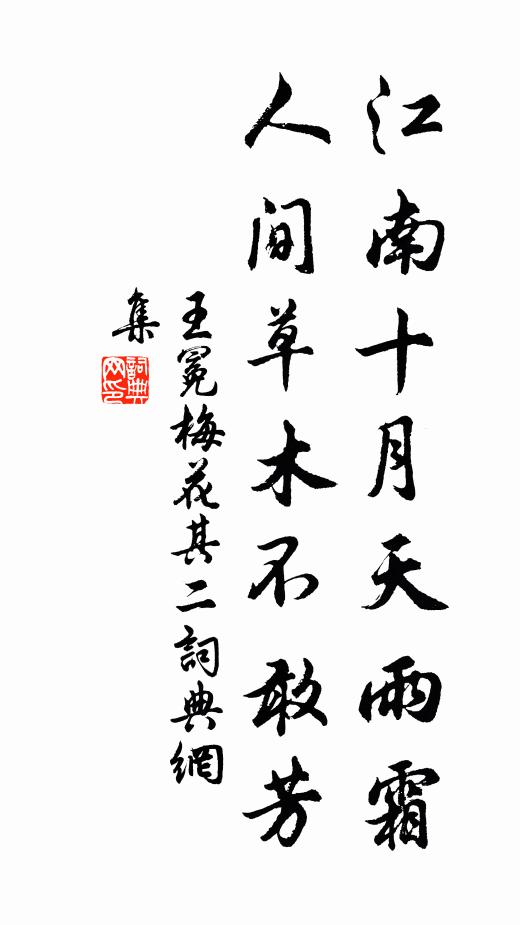 江南十月天雨霜
人间草木不敢芳
王冕梅花其二詞典網
集
詞典
网印